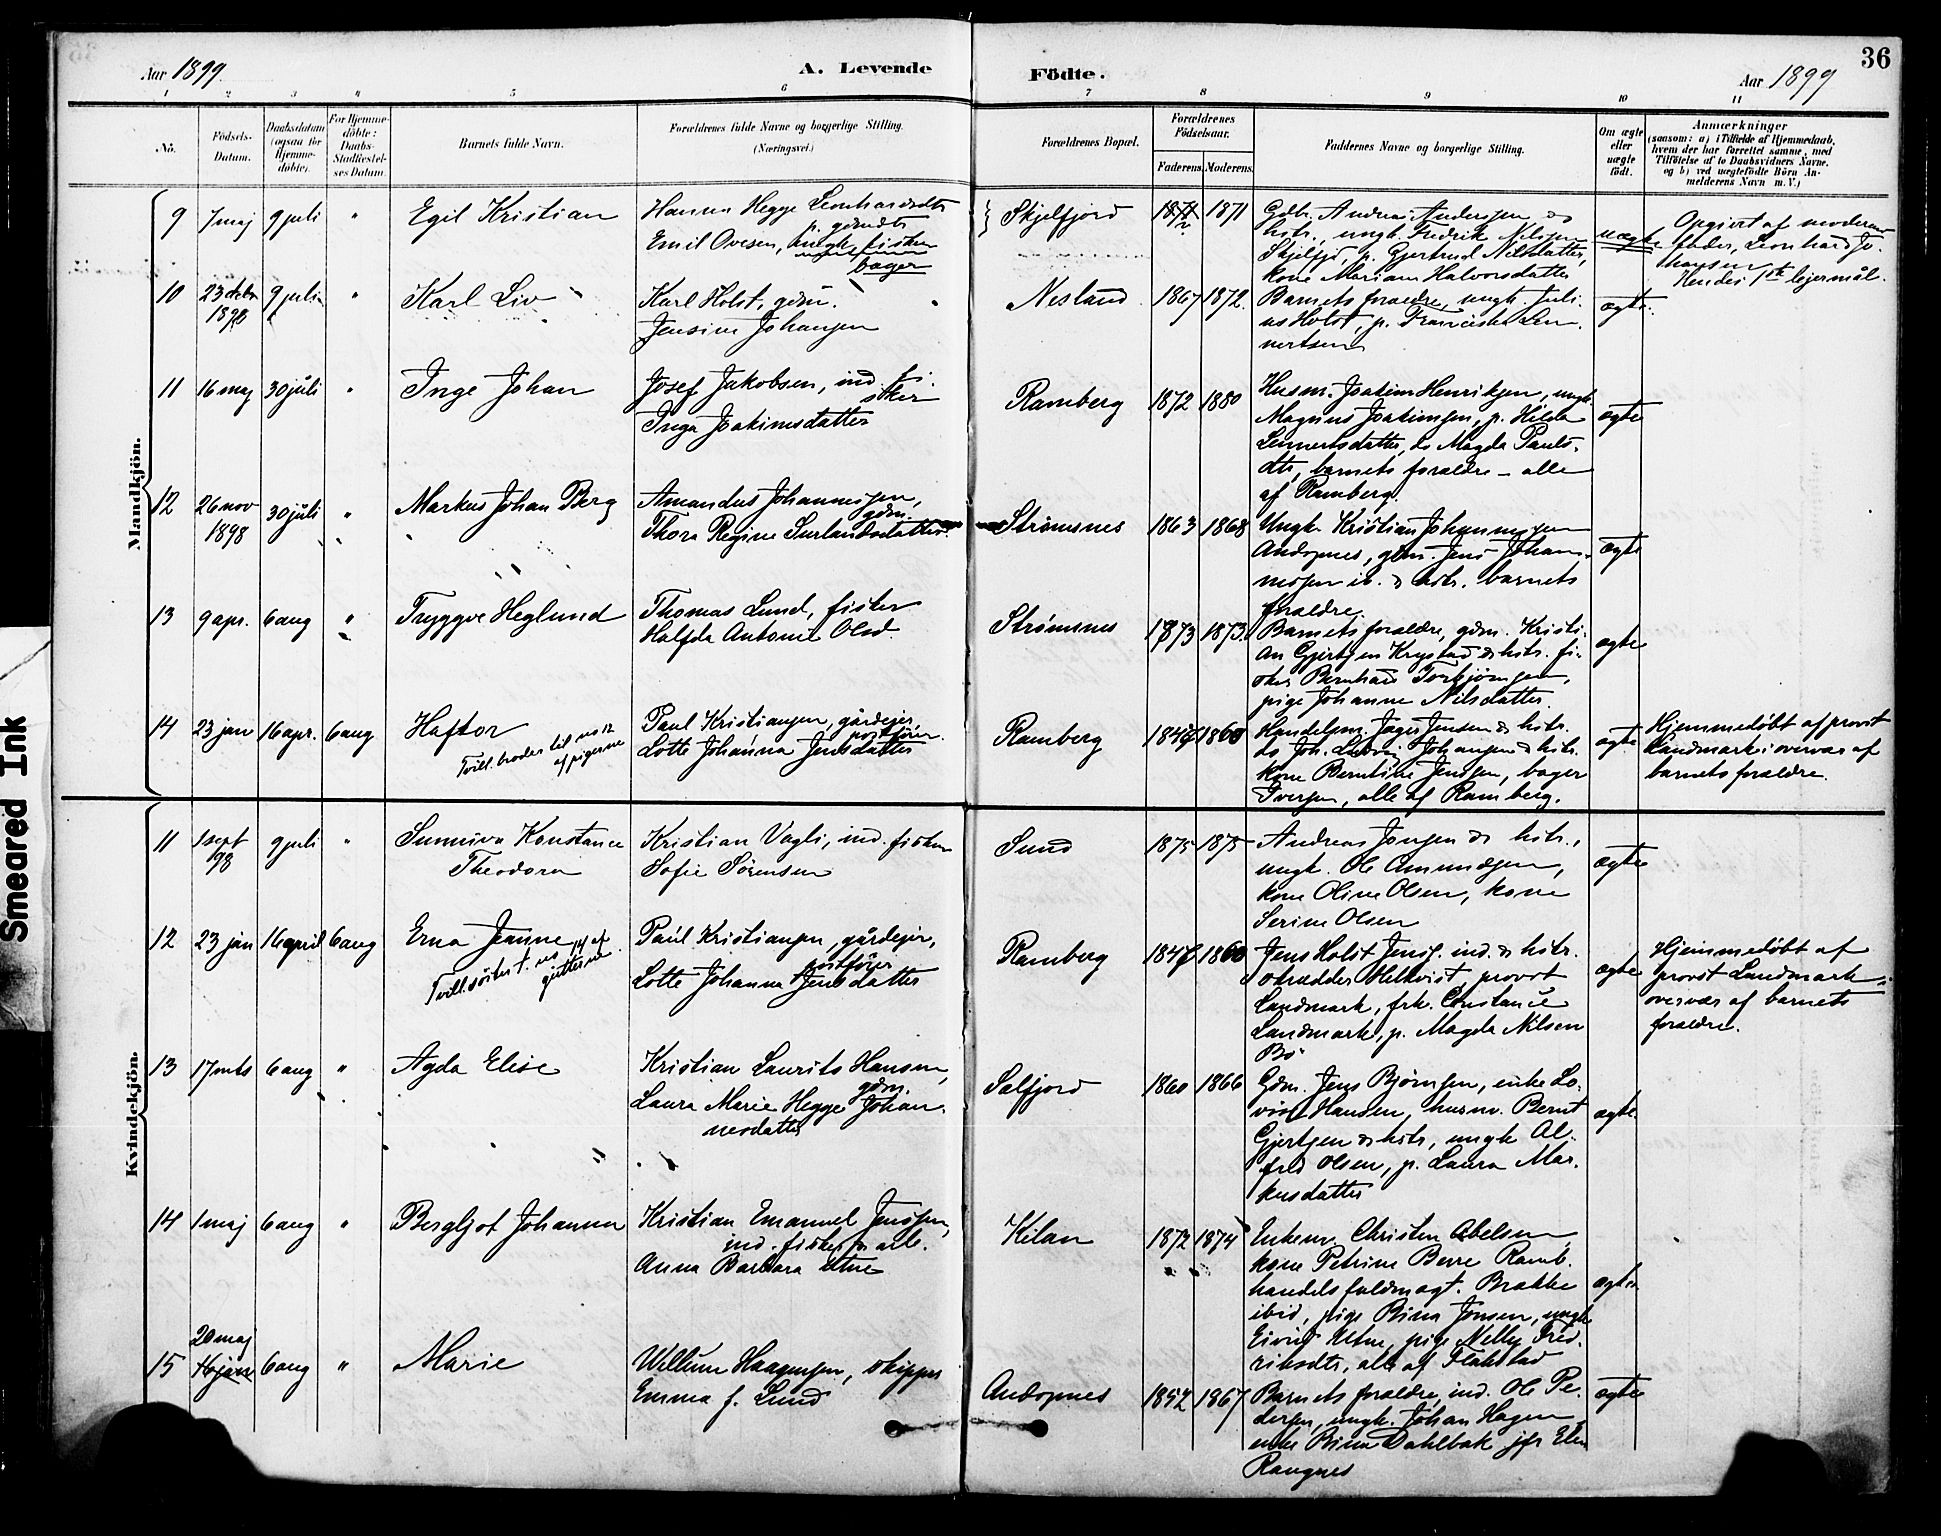 36
Aar 1899.
A. Levende
Födte.
Aar 1899
1 2 3 4 5 6 7 8 9 10 11
No.
Födsels-
Datum.
Daabsdatum
(ogsaa for
Hjemme-
döbte).
For Hjemme-
döbte:
Daabs-
Stadfæstel-
ses Datum.
Barnets fulde Navn.
Forældrenes fulde Navne og borgerlige Stilling.
(Næringsvei.)
Forældrenes Bopæl.
Forældrenes
Födselsaar.
Faderens. Moderens.
Faddernes Navne og borgerlige Stilling.
Om ægte
eller
uægte
födt.
Anmærkninger
(saasom: a) i Tilfælde af Hjemmedaab,
hvem der har forrettet samme, med
Tilföielse af to Daabsvidners Navne,
og b) ved uægtefödte Börn An-
melderens Navn m. V.)
Mandkjön.
9 7 maj 9 juli " Egil Kristian
Hanna Hegge Leonhardsdtr
p. gdmdtr
Emil Ovesen, ungk. fisker
bager
Skjelfjord 1871
Gdbr. Andreas Andersen &
hstr., ungk. Fredrik Nilssen
Skjelfjd, p. Gjertrud Nilsdatter,
kone Mariam Halvorsdatter
uægte
Opgivet af moderens
fader, Leonhard Jo-
hansen
Hendes 1ste lejermål.
10 23 debr
1898 9 juli " Karl Liv
Karl Holst, gdm.
Jensine Johansen
Nesland 1867 1872.
Barnets forældre, ungk. Juli-
us Holst, p. Franciska Len-
nertsen
ægte.
11 16 maj 30 juli " Inge Johan
Josef Jakobsen, ind. fi-
sker
Inga Joakimsdatter
Ramberg 1872 1880
Husm. Joakim Henriksen, ungk.
Magnus Joakimsen, p. Hilda
Lennertsdatter, do Magda Pauls-
dtr, barnets forældre – alle
af Ramberg.
ægte
12 26 nov
1898 30 juli " Markus Johan Berg
Amandus Johannessen,
gdm.
Thora Regine Surlandsdatter
Strømsnes 1863 1868
Ungk. Kristian Johannessen
Andopnes, gdm. Jens Johan-
nessen ib. & hstr. barnets
forældre.
ægte
13 9 apr. 6 aug " Tryggve Heglund
Thomas Lund, fisker
Halfda Antonie Olsd
Strømsnes 1873 1873.
Barnets forældre, gdm. Kristi-
an Gjertsen Krystad & hstr. fi-
sker Bernhard Torbjørnsen,
pige Johanne Nilsdatter.
ægte
14 23 jan 16 apr. 6 aug Haftor
Tvill. broder til no 12
af pigerne
Paul Kristiansen, gårdejer,
postfører
Lotte Johanna Jensdatter
Ramberg 1860
Handelsm. Jager Jensen & hstr.
do Joh. Ludvig Johansen & hstr.
kone Berntine Jensen, bager
Iversen, alle af Ramberg.
ægte
Hjemmedøbt af provst
Landmark i overvær af
barnets forældre.
Kvindekjön.
11 1 sept
98 9 juli " Sunniva Konstance
Theodora
Kristian Vagli, ind. fisker
Sofie Sörensen
Sund 1875 1875
Andreas Jonsen & hstr.,
ungk. Ole Amundsen,
kone Oline Olsen, kone
Serine Olsen
ægte
12 23 jan 16 april 6 aug Erna Jeanne
Tvill. söster t. no 14 af
gutterne
Paul Kristiansen, gårdejer,
postfører
Lotte Johanna Jensdatter
Ramberg 1860
Jens Holst Jens. ind. & hstr.
skrædder Helkvist, provst
Landmark, frk. Constance
Landmark, p. Magda Nilsen
Bö
ægte
Hjemmedøbt af
provst Landmark i
overvær af barnets
forældre.
13 17 mts 6 aug " Agda Elise
Kristian Laurits Hansen,
gdm.
Laura Marie Hegge Johan-
nesdatter
Selfjord 1860 1866
Gdm. Jens Bjørnsen, enke Lo-
vise Hansen, husm. Bernt
Gjertsen & hstr, ungk. Al-
fred Olsen, p. Laura Mar-
kusdatter
ægte
14 1 maj 6 aug " Bergljot Johanna
Kristian Emanuel Jenssen,
ind. fisker & arb.
Anna Barbara Utne
Kilan 1872 1874
Enkem. Christen Abelsen
kone Petrine Berre Ramb.
handelsfuldmægt. Brække
ibid, pige Bina Jensen, ungk.
Eivind Utne, pige Nelly Fred-
riksdtr, alle af Flakstad
ægte
15 20 maj
6 aug " Marie
Willum Haagensen, skipper
Emma f. Lund
Andopnes 1852 1867
Barnets forældre, ind. Ole Pe-
dersen, ungk. Johan Hagen
enke Bina Dahlbak jfr Elen
Rangnes
ægte
Smeared Ink